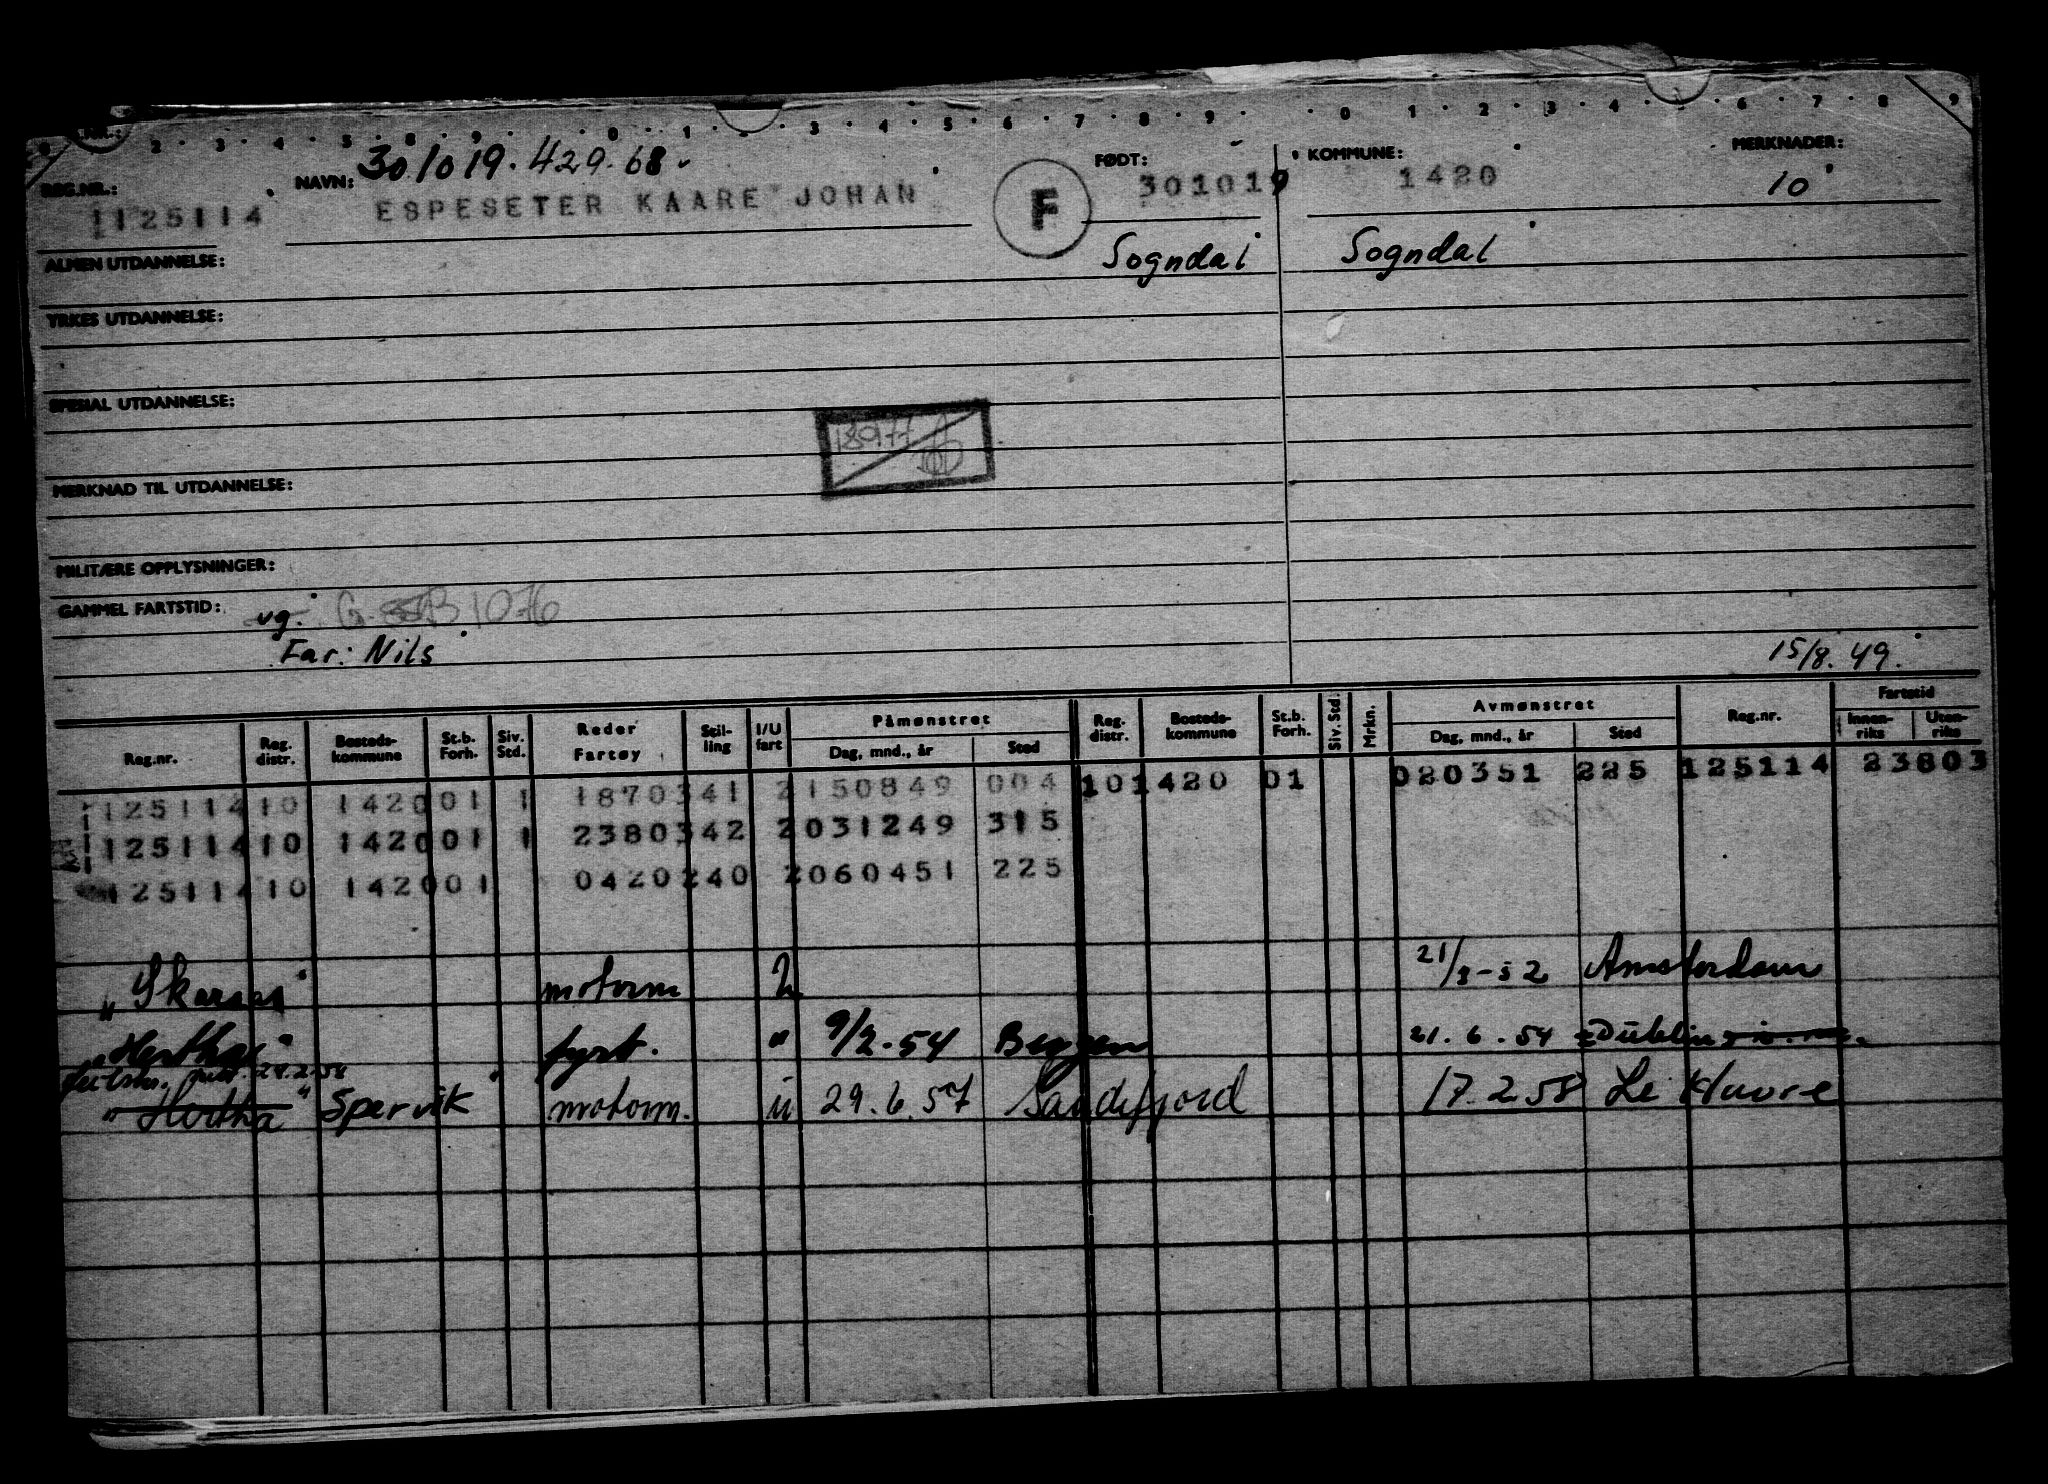 2 · 3 · 4 · 5 · 8 · 9 · 0 · 1 · 3 · 4 · 5 · 6 · 7 · 8 · 9 · 0 1 · 2 · 3 · 4 · 6 · 7 · 8 9
REG.NR.: NAVN: 301019.429.68 FØDT: KOMMUNE: MERKNADER:
1125114 ESPESETER KAARE JOHAN F 301019 1420 10
ALMEN UTDANNELSE: Sogndal Sogndal
YRKES UTDANNELSE:
SPESIAL UTDANNELSE:
MERKNAD TIL UTDANNELSE:
MILITÆRE OPPLYSNINGER:
GAMMEL FARTSTID: vg. G
Far: Nils 15/8.49.
Reg.nr. Reg. distr. Bosteds- kommune St.b. Forh. Siv. Std. Reder Fartøy Stil- ling I/U fart Påmønstret Dag, mnd., år Sted Reg. distr. Bosteds- kommune St.b. Forh. Siv. Std. Mrkn. Avmønstret Dag, mnd., år Sted Reg.nr. Fartstid Innen- riks Uten- riks
125114 10 1420 01 1 1870341 2 150849 004 10 1420 01 020351 225 125114 23803
125114 10 1420 01 1 2380342 2 031249 315
125114 10 1420 01 0420240 2 060451 225
motorm 2 Amsterdam
"Hertha" fyrb. " 9/2-54 Bergen 21.6.54 Dublin
"Hertha" Spervik" motorm. u 29.6.57 Sandefjord 17.2.58 Le Havre